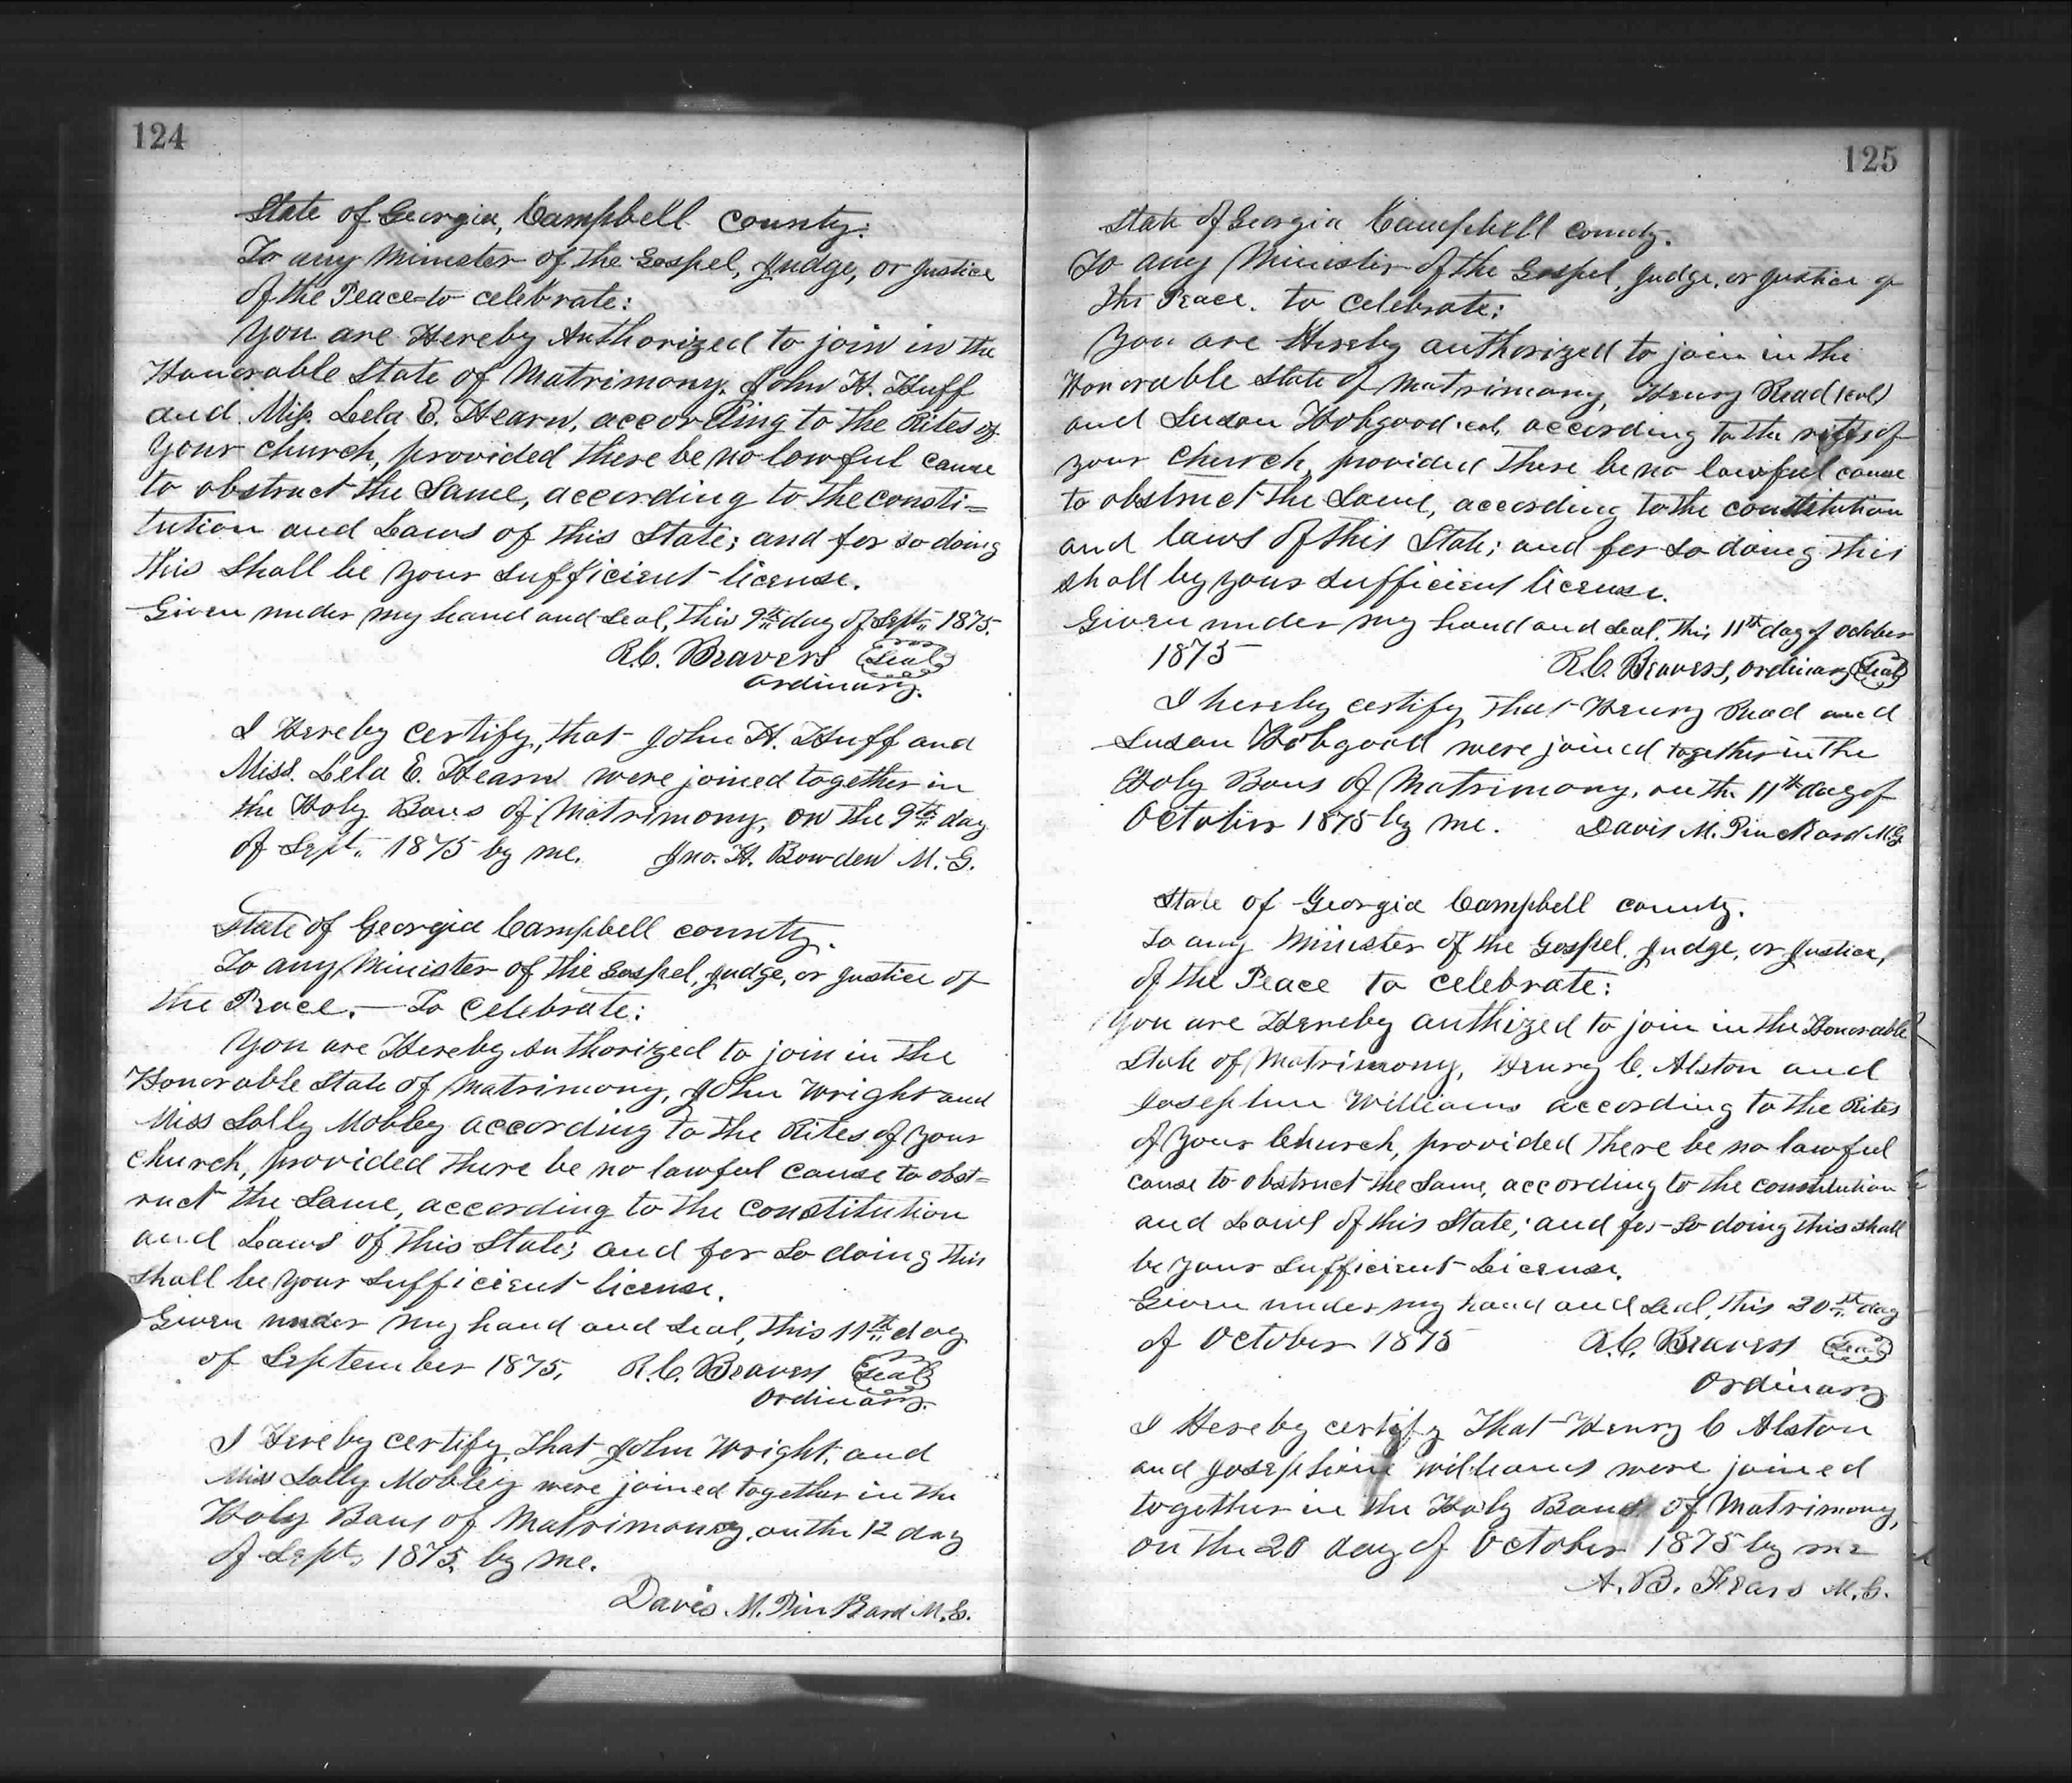 124
State of Georgia, Campbell County:
To any Minister of the Gospel, Judge, or Justice
of the Peace to celebrate:
You are Hereby Authorized to join in the
Honorable State of Matrimony, John H. Huff
and Miss. Lela E. Hearn, according to the Rites of
your church, provided there be no lawful cause
to obstruct the Same, according to the consti=
tution and Laws of this State; and for so doing
this Shall be your sufficient license.
Given under my hand and seal, this 9th day of Sept. 1875.
R.C. Beavers (Seal)
Ordinary.
I Hereby certify, that John H. Huff and
Miss. Lela E. Hearn were joined together in
the Holy Bans of Matrimony, on the 9th day
of Sept. 1875 by me. Jno. H. Bowden M.G.
State of Georgia Campbell county.
To any Minister of the Gospel, Judge, or Justice of
the Peace. — To Celebrate:
You are Hereby Authorized to join in the
Honorable State of Matrimony, John Wright and
Miss Sally Mobley according to the Rites of your
church, provided there be no lawful cause to obst=
ruct the Same, according to the Constitution
and Laws of this State; and for so doing this
shall be your sufficient license.
Given under my hand and seal, this 11th day
of September 1875. R.C. Beavers (Seal)
Ordinary.
I Hereby certify, that John Wright, and
Miss Sally Mobley were joined together in the
Holy Bans of Matrimony, on the 12 day
of Sept. 1875, by me.
Davis M. Pinkard M.G.
125
State of Georgia Campbell County.
To any Minister of the Gospel, Judge, or Justice of
the Peace. to celebrate:
You are Hereby authorized to join in the
Honorable State of Matrimony, Henry Read (col)
and Susan Hobgood, col, according to the rites of
your church, provided there be no lawful cause
to obstruct the Same, according to the constitution
and laws of this State; and for so doing this
shall by your sufficient license.
Given under my hand and seal. this 11th day of October
1875 R.C. Beavers, Ordinary (Seal)
I hereby certify, that Henry Read and
Susan Hobgood were joined together in the
Holy Bans of Matrimony, on the 11th day of
October 1875 by me. Davis M. Pinckard M.G.
State of Georgia Campbell county.
To any Minister of the Gospel, Judge, or Justice,
of the Peace to celebrate:
You are Hereby authized to join in the Honorable
State of Matrimony, Henry C. Alston and
Josephine Williams according to the Rites
of your Church, provided there be no lawful
cause to obstruct the Same, according to the constitution
and Laws of this State; and for so doing this shall
be your sufficient License.
Given under my hand and seal, this 20st day
of October 1875 R.C. Beavers (Seal)
Ordinary
I Hereby certify That Henry C Alston
and Josephine Williams were joined
together in the Holy Bans of Matrimony,
on the 20 day of October 1875 by me
A. B. Fears M.G.